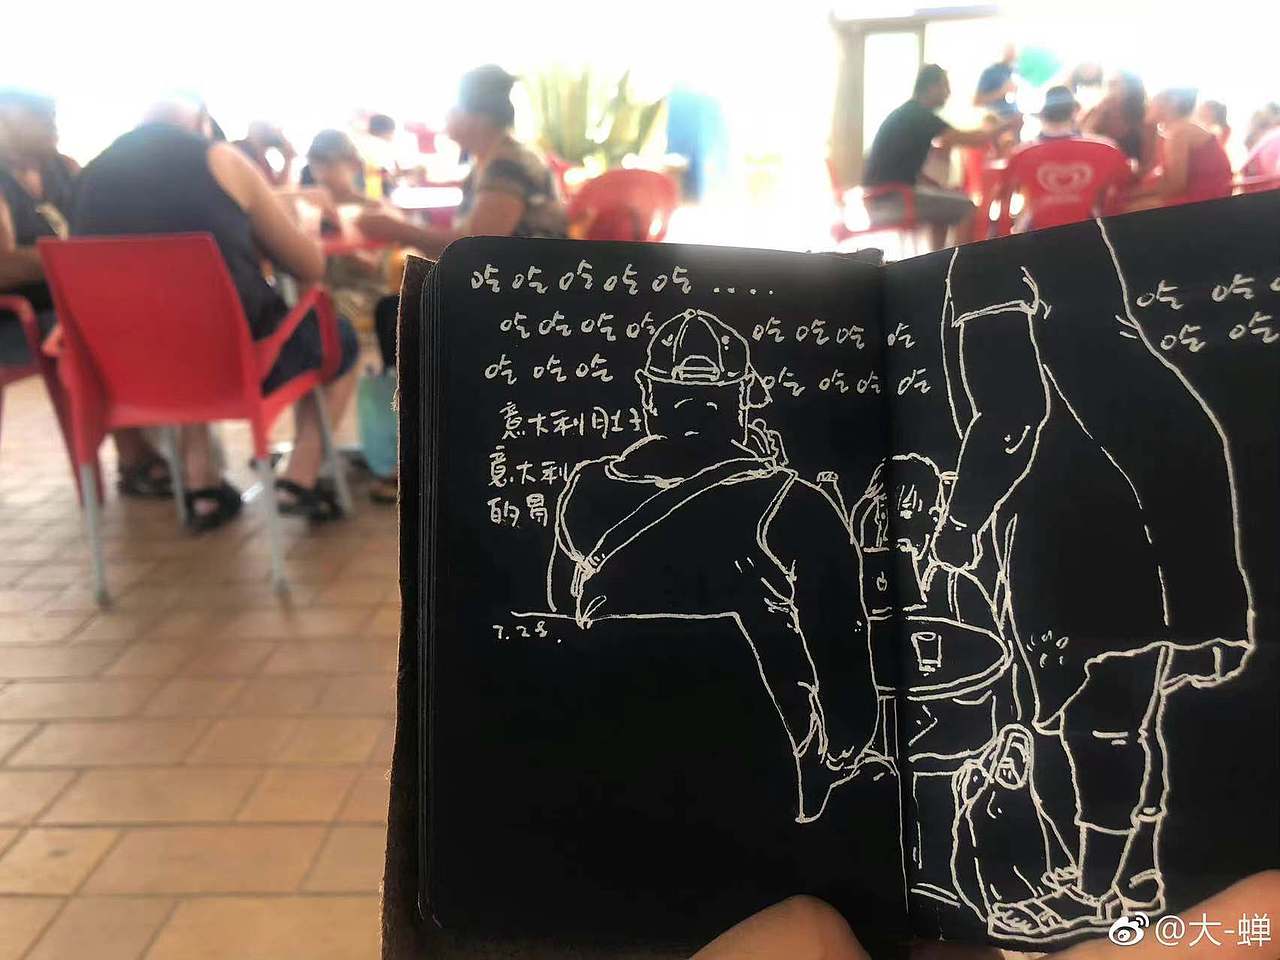 哈哈哈哈哈....
哈哈哈哈
哈哈哈哈
哈哈哈
哈哈哈哈
意大利肚子
意大利
的胃
7.28.
哈 哈哈
哈 哈
@大-蝉